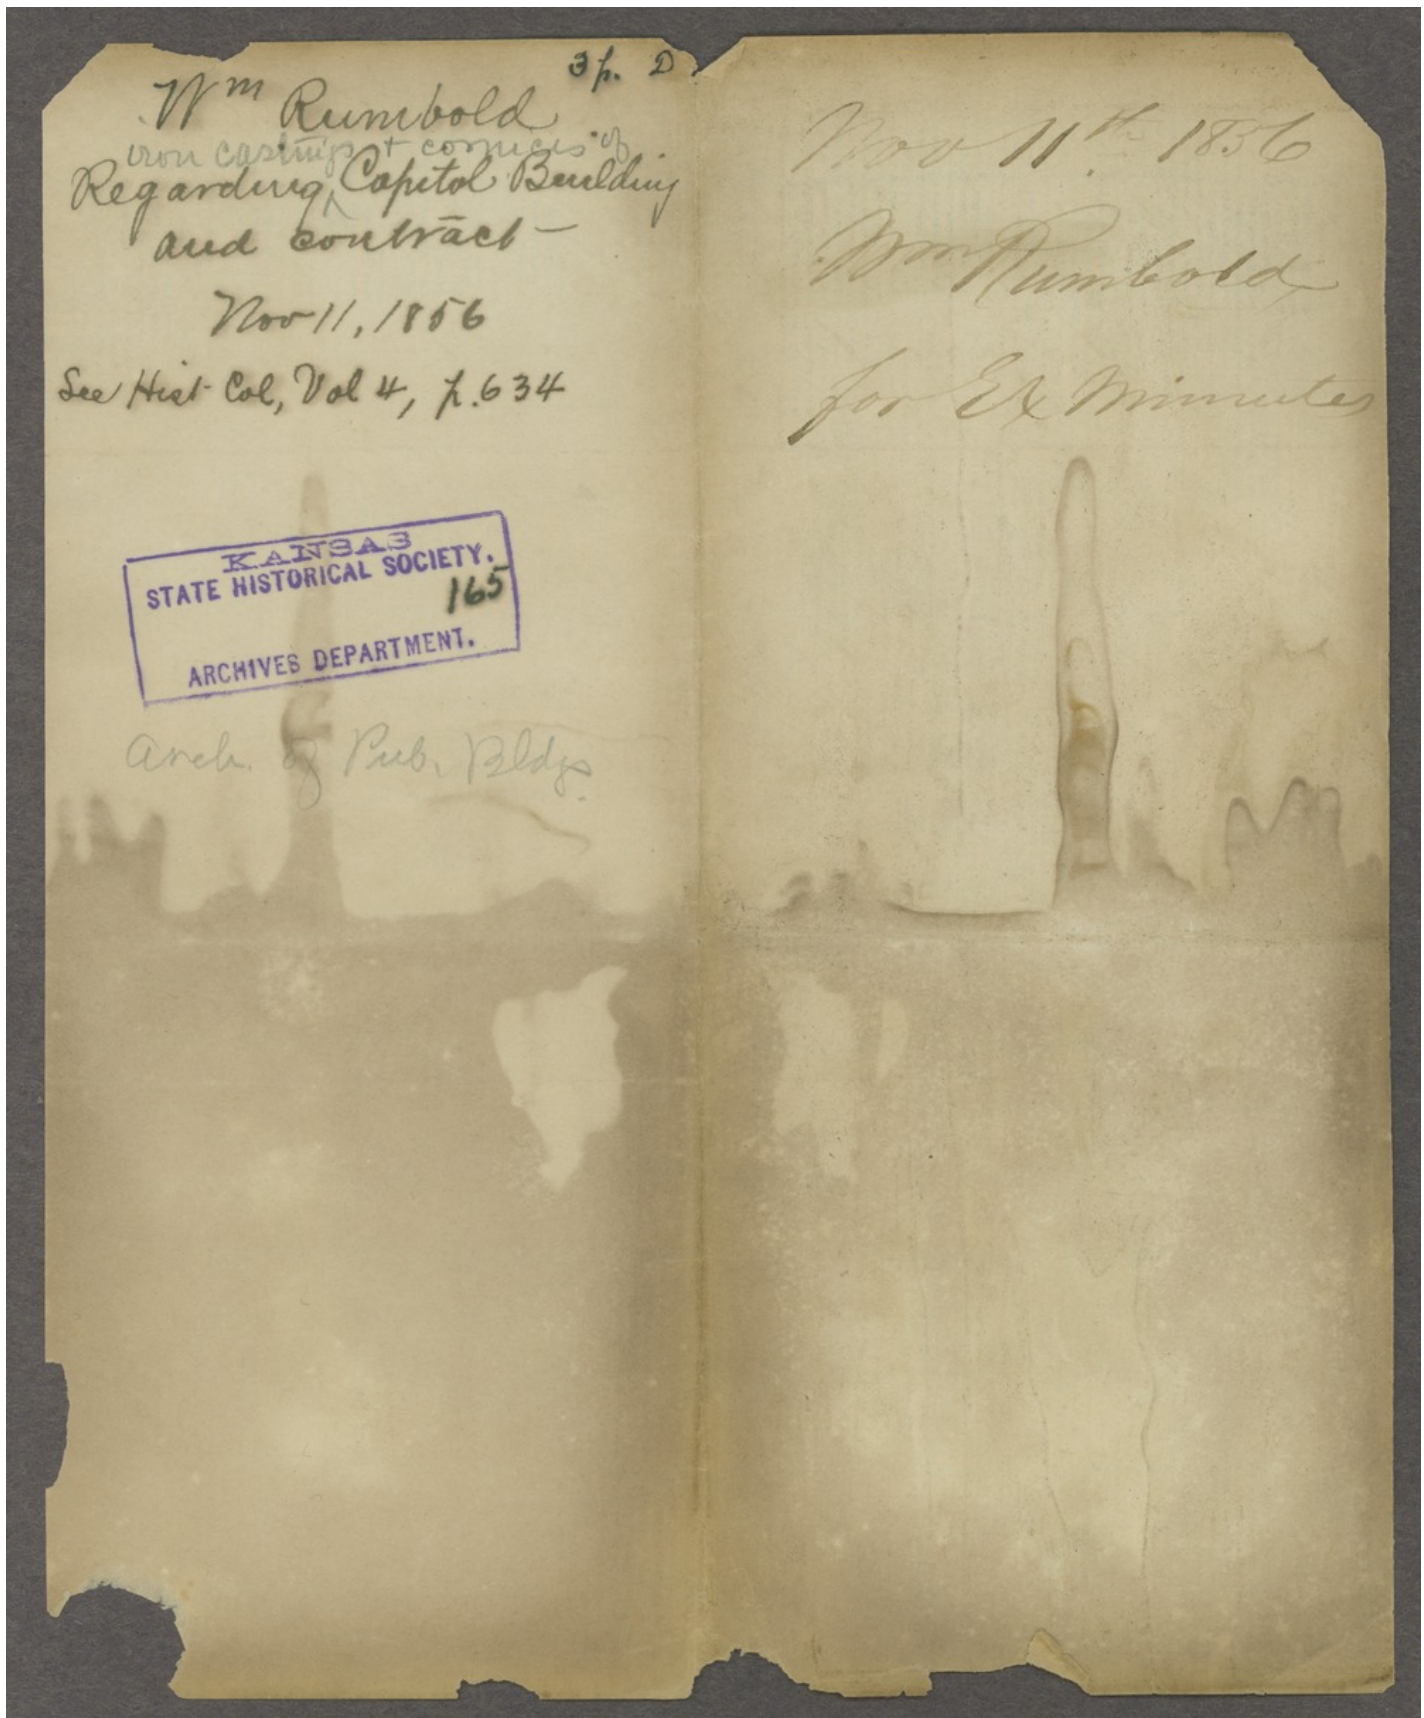 3 p. D
Wm Rumbold
iron castings + cornices of
Regarding Capitol Building
and contract —
Nov 11, 1856
See Hist Col, Vol 4, p. 634
KANSAS
STATE HISTORICAL SOCIETY.
165
ARCHIVES DEPARTMENT.
Arch. of Pub. Bldgs.
Nov 11th 1856
Wm Rumbold
for Ex Minutes